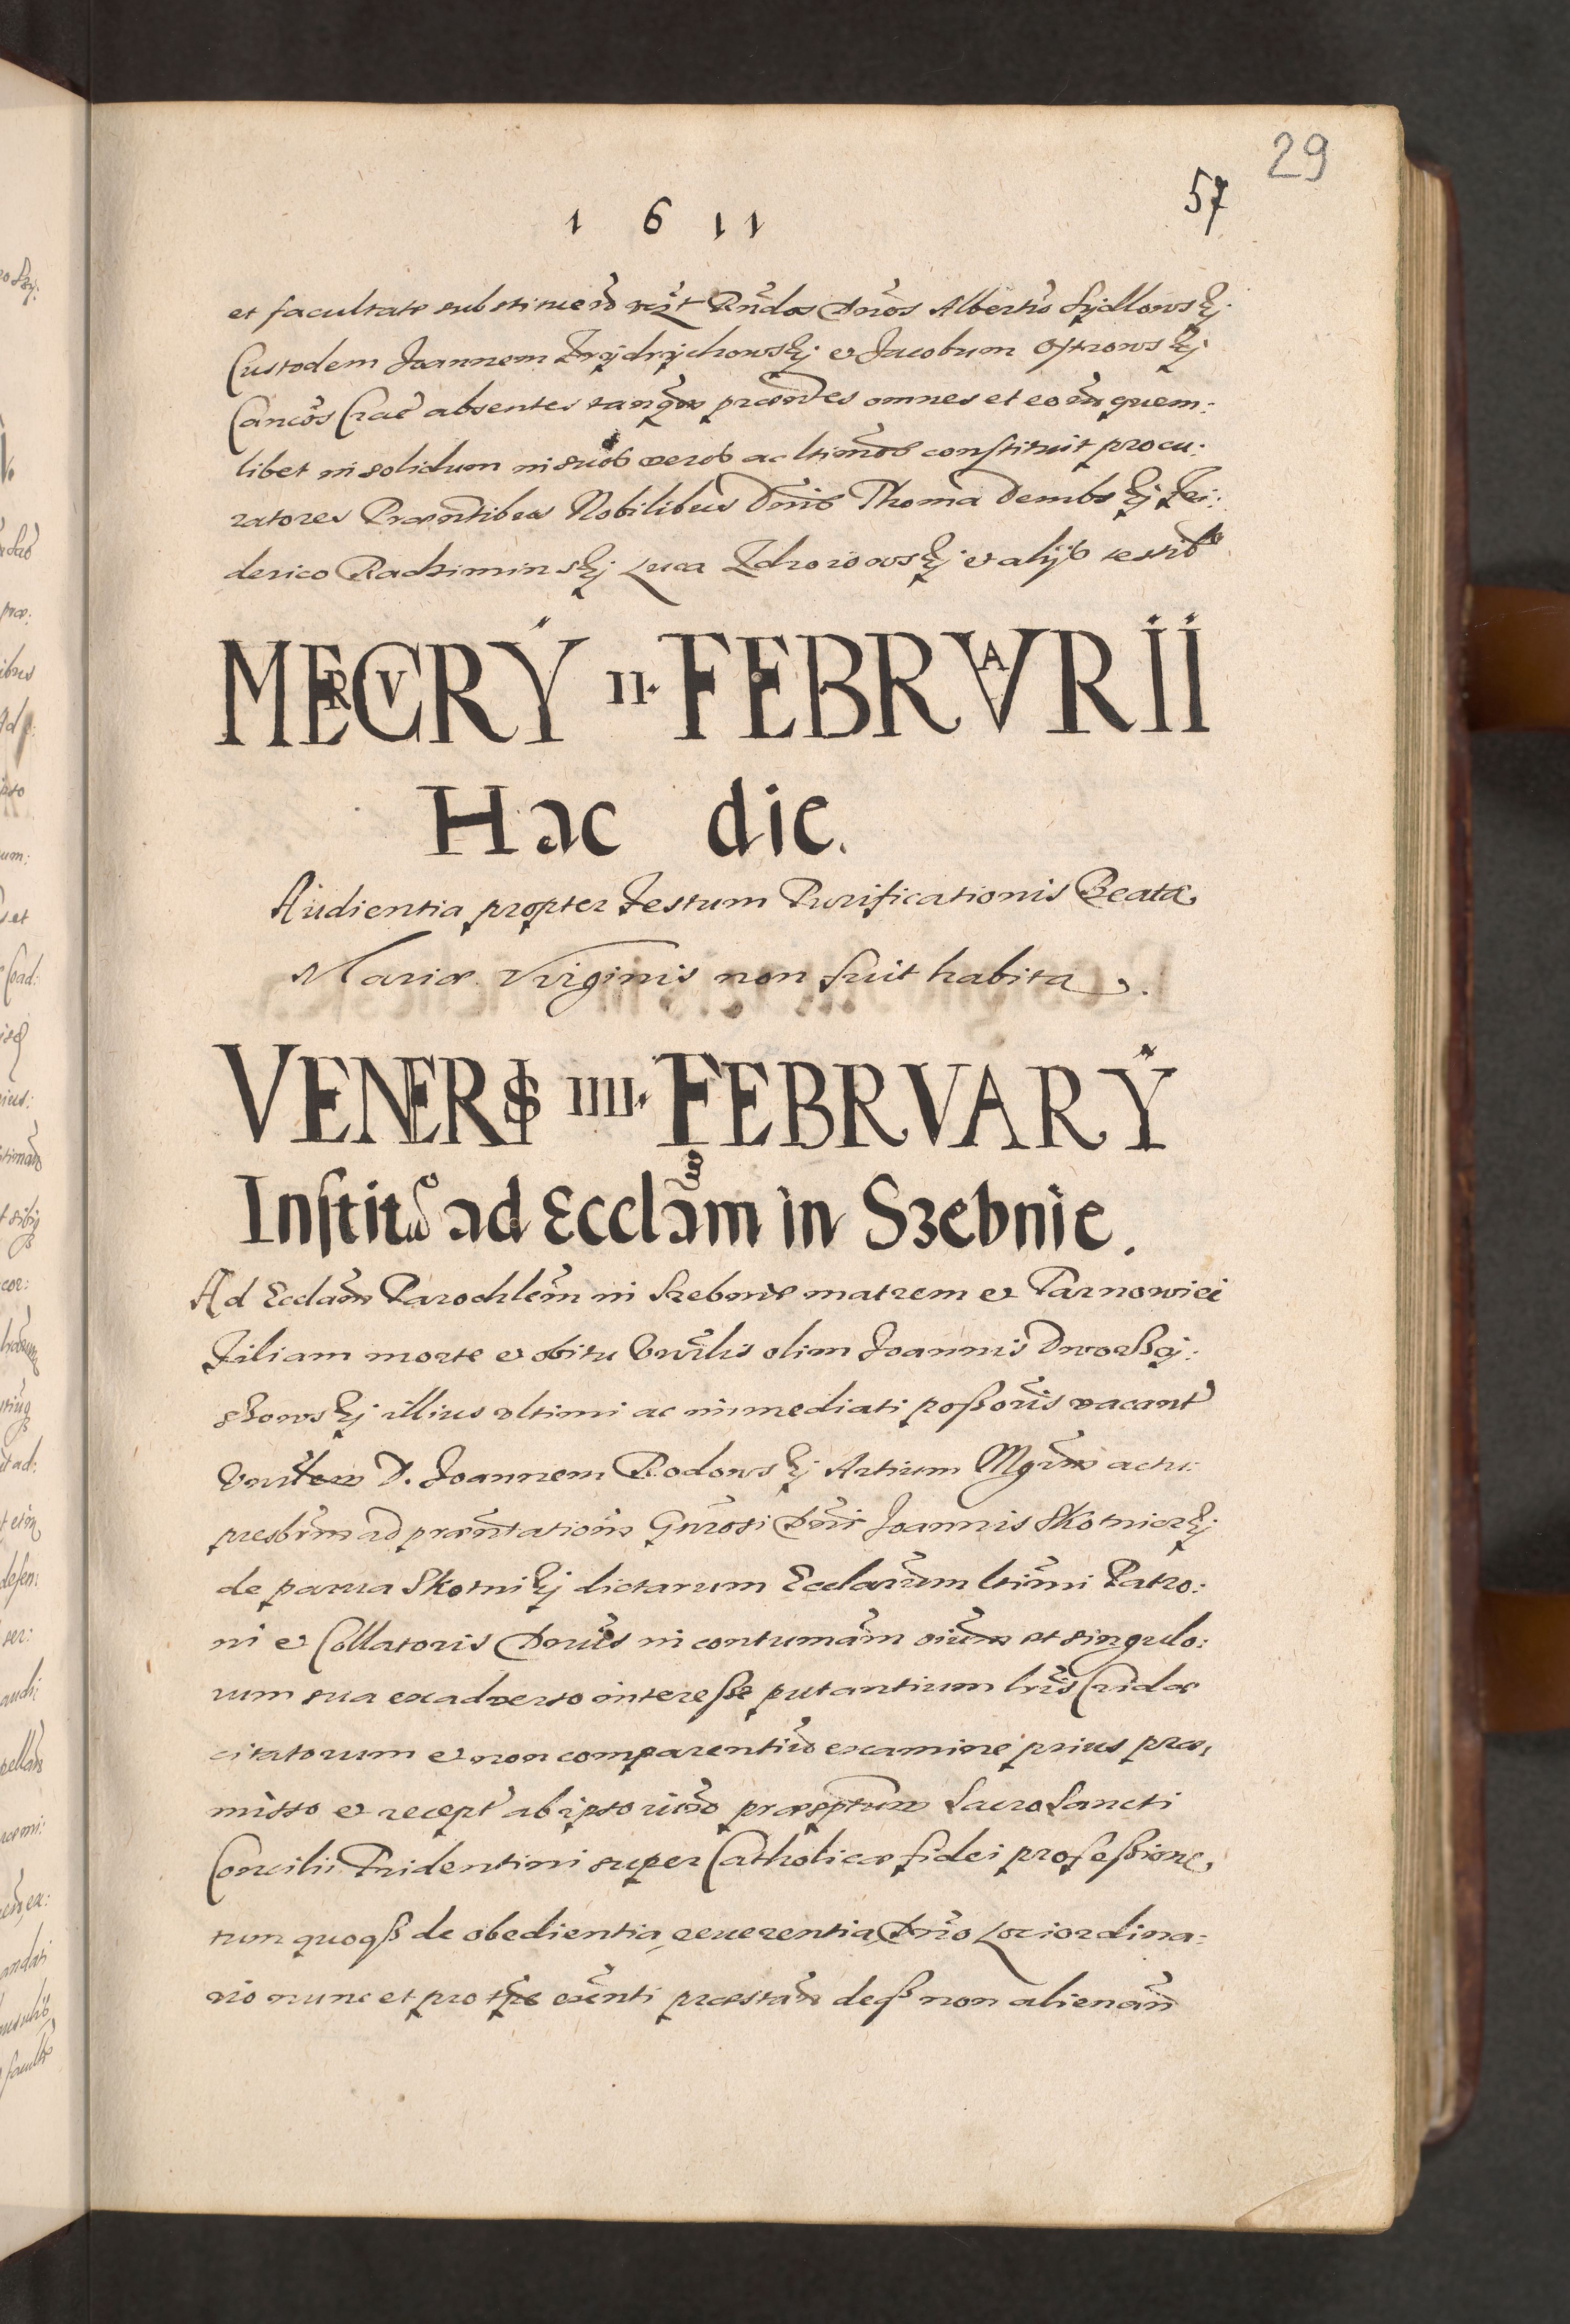 29
57
1 6 11
et facultate substituend Rndos Dnos Albertu Sydlowskj
Custodem Joannem Frydrychowskj et Jacobum Ostrowskj
Cancos Crac absentes tanqm prntes omnes et eorum quem:
libet in solidum in suos veros ac ltimos constituit procu:
ratores Praesentibus Nobilibus Dnis Thoma Dembskj Fri:
derico Radziminskj Luca Zdrorowskj et alijs testib
MERCVRY II. FEBRVARII
Hac die.
Audientia propter Festum Purificationis Beatæ
Mariæ Virginis non fuit habita.
VENERIS IIII. FEBRVARY
Institũo ad Ecclam in Szebnie.
Ad Ecclam Parochlem in Szebnie matrem et Tarnowici
Filiam morte et obitu Vnrlis olim Joannis Dworszy:
skowskj illius vltimi ac immediati poßoris vacant
D. Joannem Rodowskj Artium Mgrm actu
presbrm ad prntationem Gnrosi Dni Joannis Skotniczkj
de parua Skotnikj dictarum Ecclarum ltimi Patro:
ni et Collatoris Dnus in contumam oium et singulo:
rum sua ex aduerso interesse putantium lris Cridæ
citatorum et non comparentiu examine prius præ,
misso et recept ab ipso iurto præsptum Sacro Sancti
Concilii Tridentini super Catholicæ fidei profeßione,
tum quoqß de obedientia, reuerentia Dno Loci ordina:
rio nunc et pro tpe exnti præstan deqß non alienan